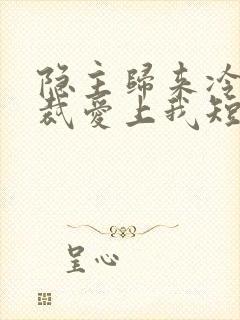 隐主歸来冷
裁愛上我短
呈心